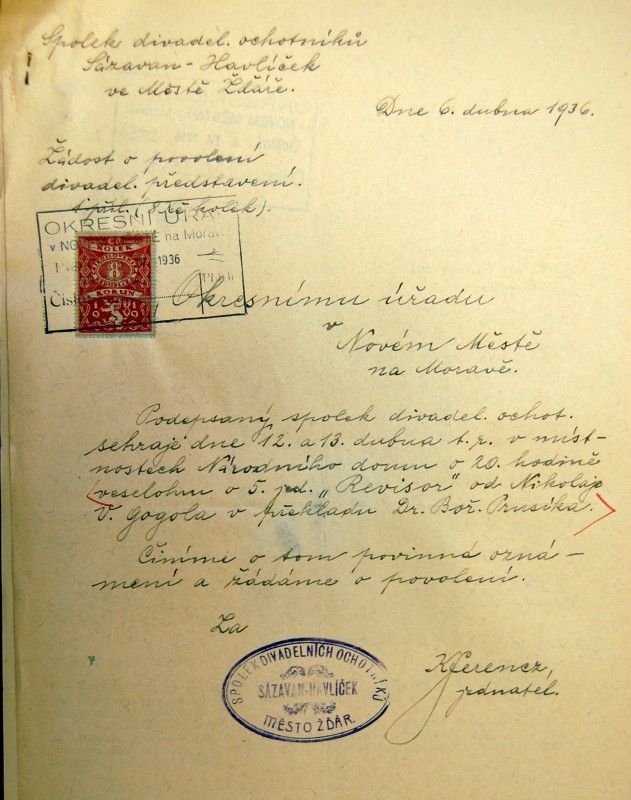 Spolek divadel. ochotníků
Sázavan-Havlíček
ve Městě Žďáře.
Dne 6. dubna 1936.
Žádost o povolení
divadel. představení.
1 příl. (8 Kč kolek).
OKRESNÍ ÚŘA
v NO E na Morav
1936
Čís
KOLEK
8
KORUN
1919
Okresnímu úřadu
v
Novém Městě
na Moravě.
Podepsaný spolek divadel. ochot.
sehraje dne 12. a 13. dubna t. r. v míst-
nostech Národního domu o 20. hodině
veselohru o 5. jed. „Revisor" od Nikolaje
V. Gogola v překladu Dr. Boř. Prusíka.
Činíme o tom povinné ozná-
mení a žádáme o povolení.
Za
SPOLEK DIVADELNÍCH OCHOTNÍKŮ
SÁZAVAN-HAVLÍČEK
MĚSTO ŽĎÁR.
KFerencz,
jednatel.